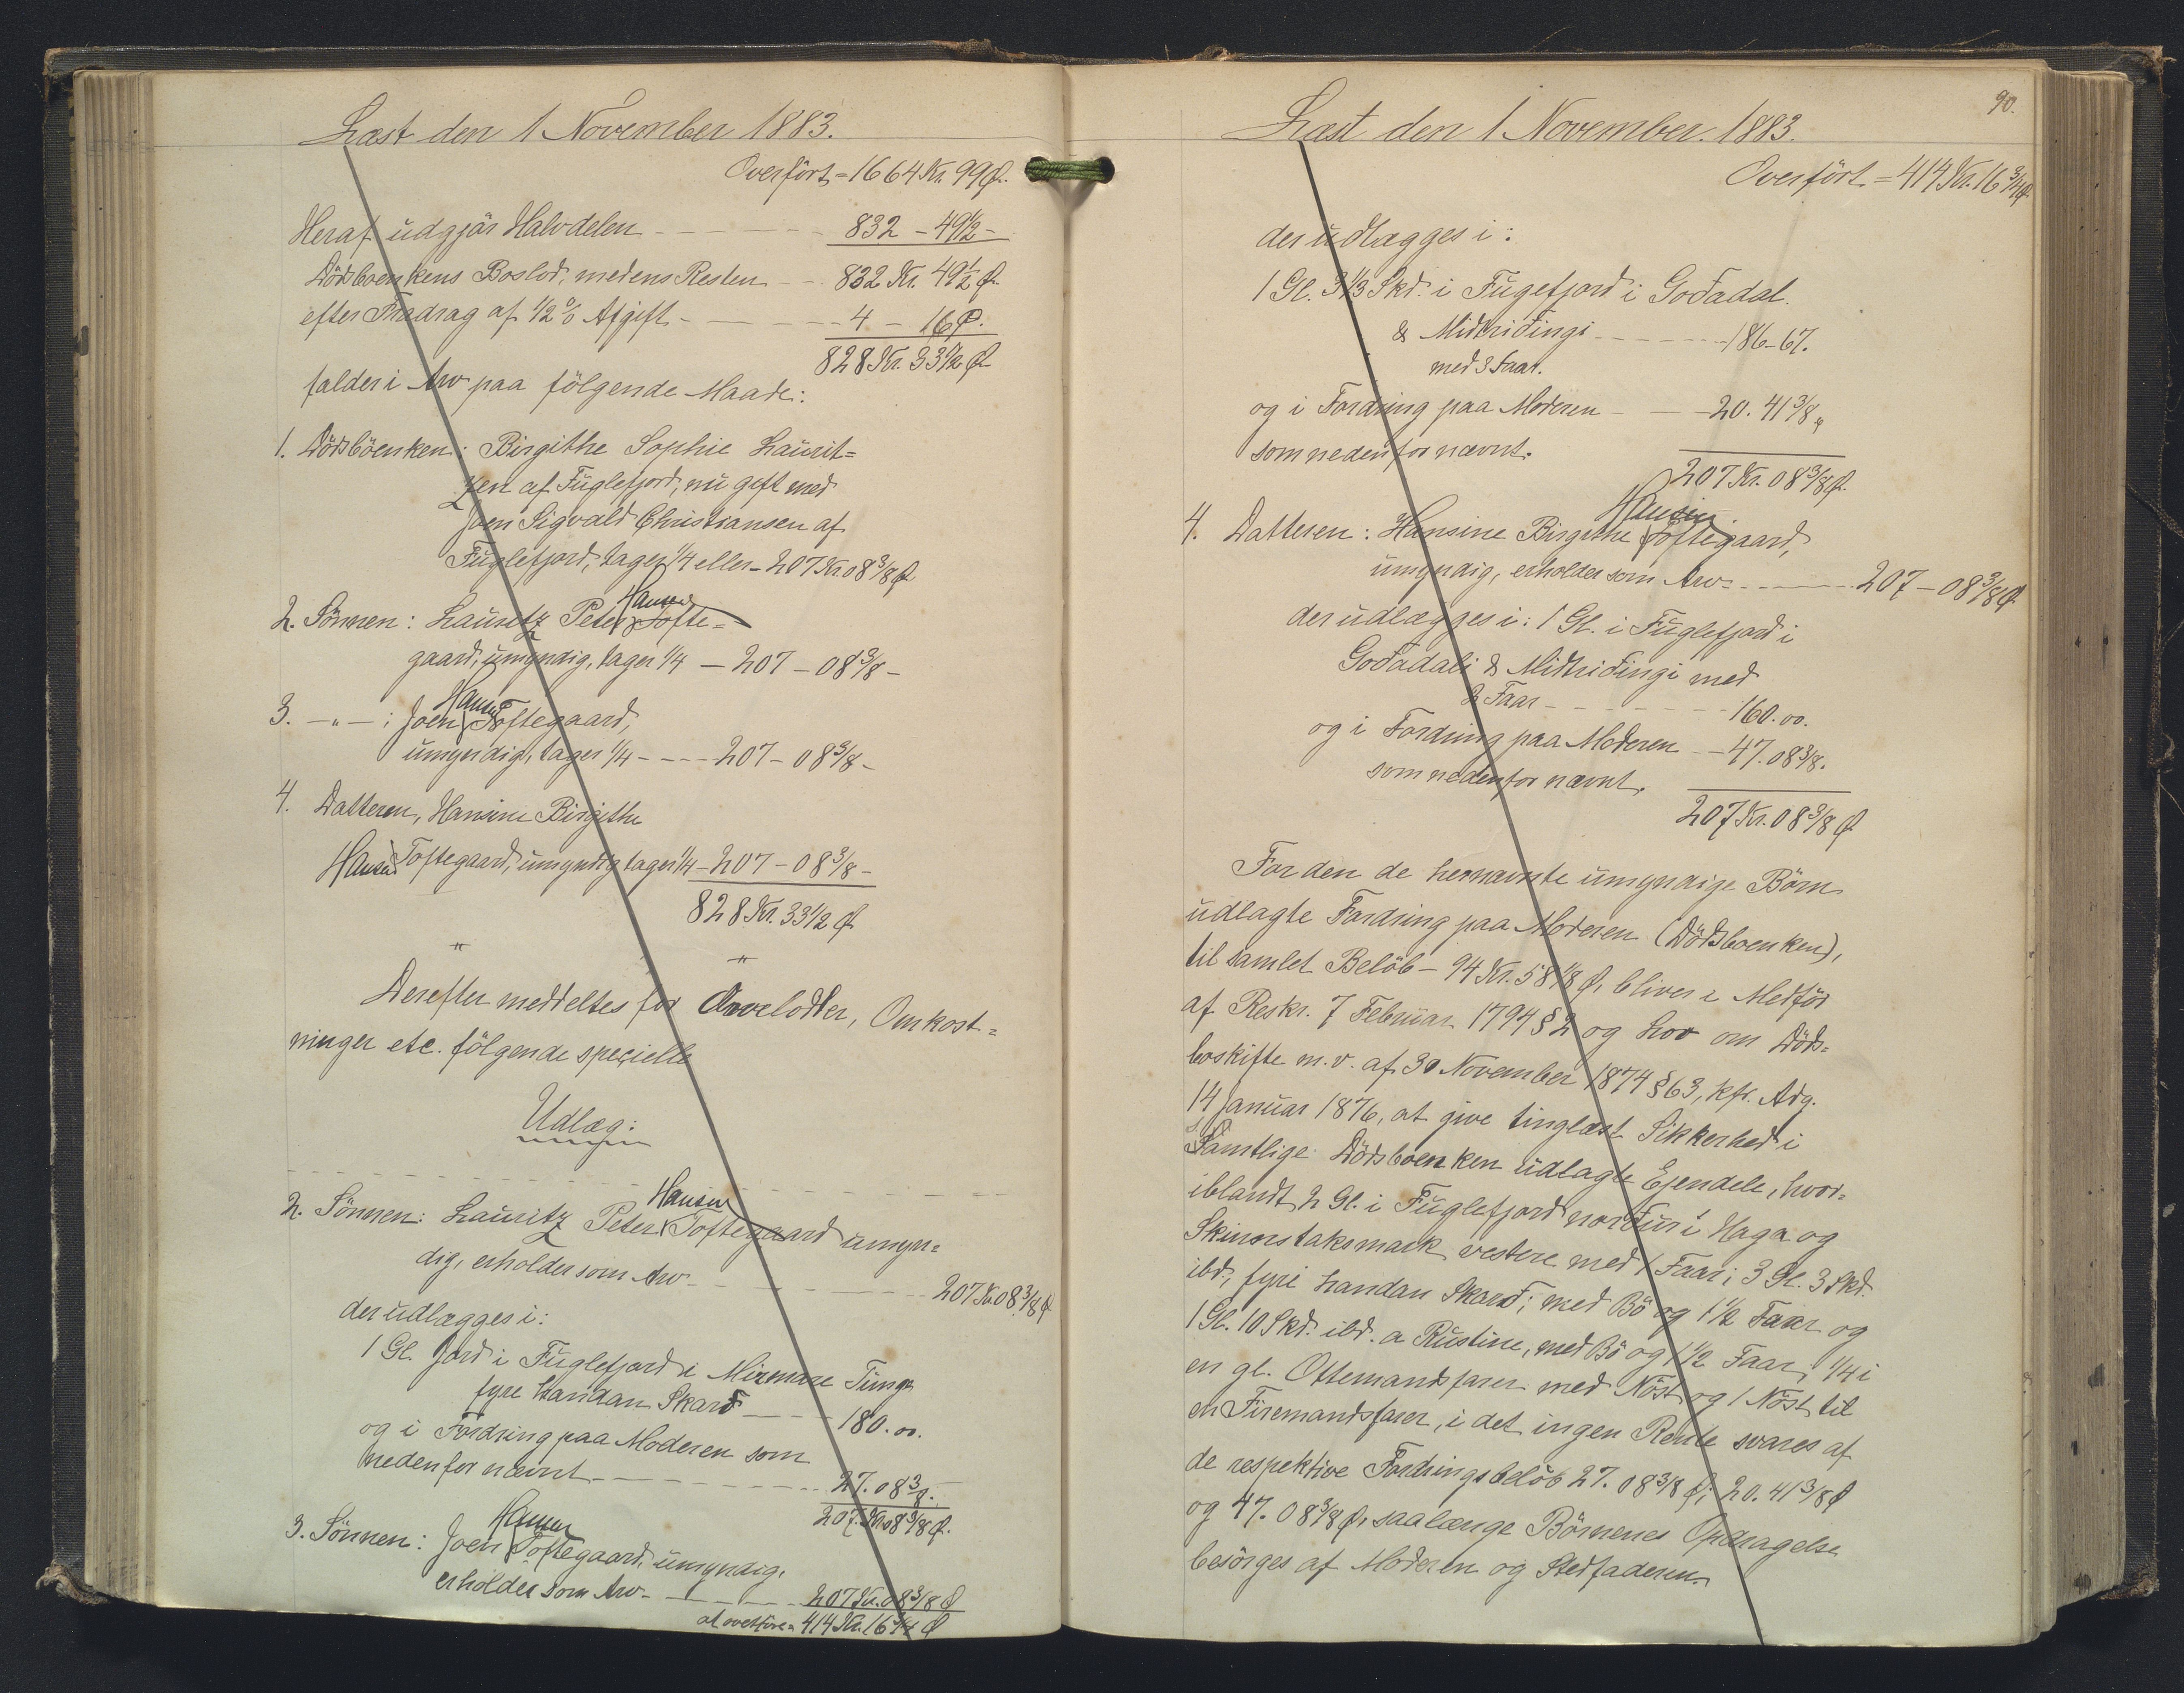 Læst den 1 November 1883.
Overført = 1664 Kr. 99 Ø.
Heraf udgjør Halvdelen - - - 832 - 49½ -
Dødsboenkens Boslod, medens Resten - - 832 Kr. 49½ Ø.
efter Fradrag af ½ % Afgift - - - 4 - 16 Ø.
828 Kr. 33½ Ø
falder i Arv paa følgende Maade:
1. Dødsboenken: Birgithe Sophie Laurit=
zen af Fuglefjord, nu gift med
Joen Sigvald Christiansen af
Fuglefjord, tager ¼ eller - 207 Kr 08⅜ Ø
Hansen
2. Sønnen: Lauritz Peter Tofte=
gaard, umyndig, tager ¼ - 207 - 08⅜ -
Hansen
3. - " - : Joen Toftegaard,
umyndig, tager ¼ - - - 207 - 08⅜ -
4. Datteren, Hansine Birgithe
Hansen Toftegaard, umyndig tager ¼ - 207 - 08⅜ -
828 Kr. 33½ Ø
" "
Derefter meddeltes for Arvelodder, Omkost=
ninger etc. følgende specielle
Udlæg:
Hansen
2. Sønnen: Lauritz Peter Toftegaard umyn=
dig, erholder som Arv - - - 207 Kr. 08⅜ Ø
der udlægges i:
1 Gl. Jord i Fuglefjord i Mirmare Tunge
fyre handan Skarð - - - 180. 00.
og i Fordring paa Moderen som
nedenfor nævnt - - - 27. 08⅜.
207. Kr 08⅜ Ø.
Hansen
3. Sønnen: Joen Toftegaard, umyndig,
erholder som Arv - - - 207 Kr. 08⅜ Ø
at overføre = 414 Kr. 16¾ Ø
90.
Læst den 1 November. 1883.
Overført = 414 Kr. 16¾ Ø
der udlægges i:
1 Gl. 3⅓ Skd. i Fugefjord i Goðadal.
& Miðriðingi - - - 186 - 67.
med 3 Faar.
og i Fordring paa Moderen - - 20. 41⅜ "
som nedenfor nævnt.
207 Kr. 08⅜ Ø.
Hansen
4. Datteren: Hansine Birgithe Toftegaard,
umyndig, erholder som Arv - - - 207 - 08⅜ Ø
der udlægges i: 1 Gl. i Fuglefjord i
Goðadali & Miðriðingi med
2 Faar - - - 160. 00.
og i Fordring paa Moderen - - 47. 08⅜.
som nedenfor nævnt.
207 Kr. 08⅜ Ø
For den de hernævnte umyndige Børn
udlagte Fordring paa Moderen (Dødsboenken),
til samlet Beløb - 94 Kr. 58⅛ Ø, bliver i Medfør
af Reskr. 7 Februar 1794 § 2 og Lov om Døds=
boskifte m. v. af 30 November 1874 § 63, kfr. Adg.
14 Januar 1876, at give tinglæst Sikkerhed i
samtlige Dødsboenken udlagte Ejendele, hvor=
iblandt 2 Gl. i Fuglefjord norður i Haga og
Skinnstaksmark vestere med 1 Faar; 3 Gl. 3 Skd.
ibd, fyri handan Skarð; med Bø og 1½ Faar og
1 Gl. 10 Skd. ibd. a Rustine, med Bø og 1½ Faar, ¼ i
en gl. Ottemandsfarer med Nøst og 1 Nøst til
en Firemandsfarer, i det ingen Rente svares af
de respektive Fordringsbeløb 27. 08⅜ Ø; 20. 41⅜ Ø
og 47. 08⅜ Ø, saalænge Børnenes Opdragelse
besørges af Moderen og Stedfaderen.